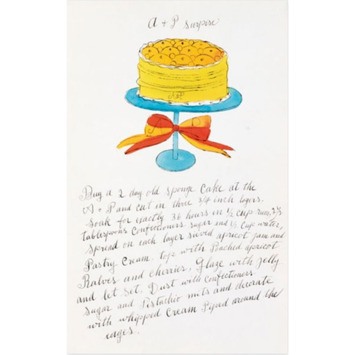 A + P surprise
Buy a 2 day old sponge cake at the
A + P and cut in three 3/4 inch layers.
Soak for exactly 36 hours in ½ cup rum, 2½
tablespoons confectioners sugar and ½ cup water,
spread on each layer sieved apricot jam and
Pastry Cream, top with Poached apricot
Halves and cherries, Glaze with jelly
and let set, Dust with confectioners
sugar and Pistachio nuts and decorate
with whipped Cream Piped around the
eages.